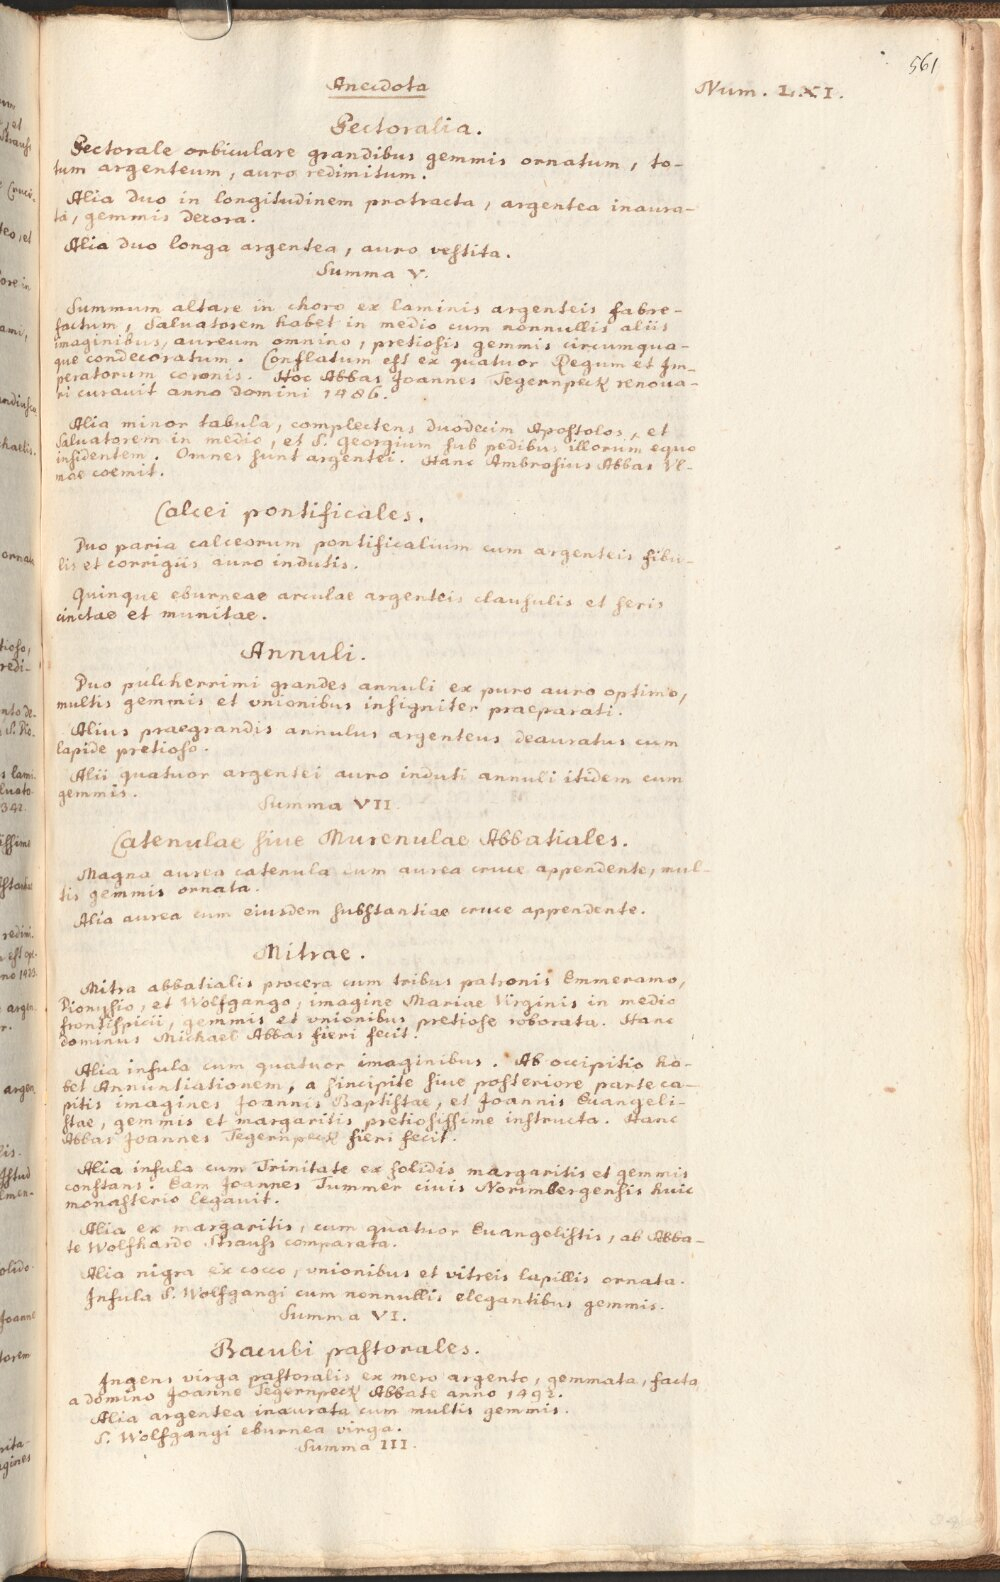 561
Anecdota Num. LXI.
Pectoralia.
Pectorale orbiculare grandibus gemmis ornatum, to-
tum argenteum, auro redimitum.
Alia duo in longitudinem protracta, argentea inaura-
ta, gemmis decora.
Alia duo longa argentea, auro vestita.
Summa V.
Summum altare in choro ex laminis argenteis fabre-
factum, Salvatorem habet in medio cum nonnullis aliis
imaginibus, aureum omnino, pretiosis gemmis circumqua-
que condecoratum. Conflatum est ex quatuor Regum et Im-
peratorum coronis. Hoc Abbas Joannes Tegernpeck renoua-
ri curauit anno Domini 1486.
Alia minor tabula, complectens duodecim Apostolos, et
Saluatorem in medio, et S. Georgium sub pedibus illorum equo
insidentem. Omnes sunt argentei. Hanc Ambrosius Abbas Vl-
mae coemit.
Calcei pontificales.
Duo paria calceorum pontificalium cum argenteis fibu-
lis et corrigiis auro indutis.
Quinque eburneae arculae argenteis clausulis et seris
cinctae et munitae.
Annuli.
Duo pulcherrimi grandes annuli ex puro auro optimo,
multis gemmis et vnionibus insigniter praeparati.
Alius praegrandis annulus argenteus deauratus cum
lapide pretioso.
Alii quatuor argentei auro induti annuli itidem cum
gemmis.
Summa VII.
Catenulae siue Murenulae Abbatiales.
Magna aurea catenula cum aurea cruce appendente, mul-
tis gemmis ornata.
Alia aurea cum eiusdem substantiae cruce appendente.
Mitrae.
Mitra abbatialis procera cum tribus patronis Emmeramo,
Dionysio, et Wolfgango, imagine Mariae Virginis in medio
frontispicii, gemmis et vnionibus pretiose roborata. Hanc
dominus Michael Abbas fieri fecit.
Alia infula cum quatuor imaginibus. Ab occipitio ha-
bet Annuntiationem, a sincipite siue posteriore parte ca-
pitis imagines Joannis Baptistae, et Joannis Euangeli-
stae, gemmis et margaritis pretiosissime instructa. Hanc
Abbas Joannes Tegernpeck fieri fecit.
Alia infula cum Trinitate ex solidis margaritis et gemmis
constans. Eam Joannes Tummer ciuis Norimbergensis huic
monasterio legauit.
Alia ex margaritis, cum quatuor Euangelistis, ab Abba-
te Wolfhardo Strauss comparata.
Alia nigra ex cocco, vnionibus et vitreis lapillis ornata.
Infula S. Wolfgangi cum nonnullis elegantibus gemmis.
Summa VI.
Baculi pastorales.
Ingens virga pastoralis ex mero argento, gemmata, facta
a domino Joanne Tegernpeck Abbate anno 1492.
Alia argentea inaurata cum multis gemmis.
S. Wolfgangi eburnea virga.
Summa III.